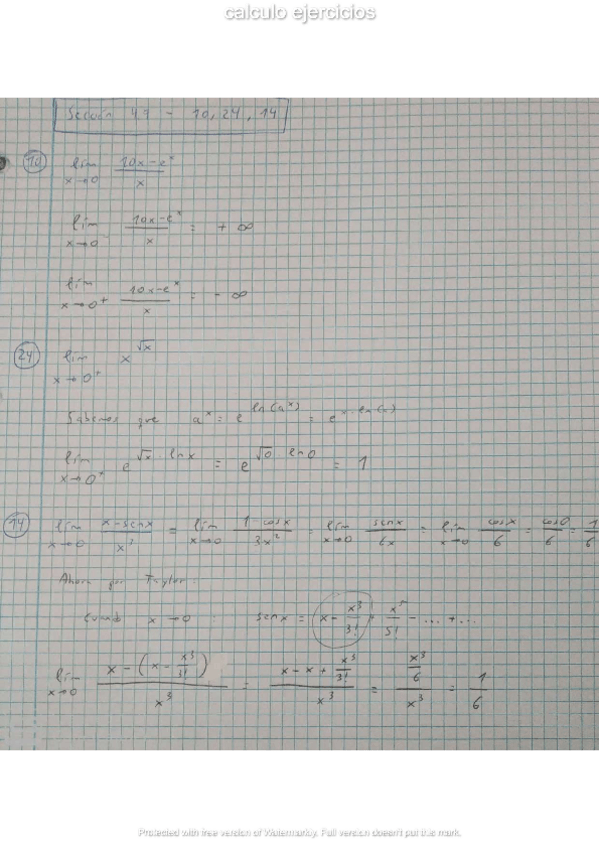 calculo ejercicios
Sección 47 - 10, 24, 14
10 lím x→0 (10x-e^x)/x
lím x→0⁻ (10x-e^x)/x = +∞
lím x→0⁺ (10x-e^x)/x = -∞
24 lím x→0⁺ x^√x
Sabemos que a^x = e^ln(a^x) = e^x·ln(x)
lím x→0⁺ e^√x·lnx = e^√0·ln0 = 1
14 lím x→0 (x-senx)/x³ = lím x→0 (1-cosx)/3x² = lím x→0 senx/6x = lím x→0 cosx/6 = cos0/6 = 1/6
Ahora por Taylor:
Cuando x→0 : senx = x - x³/3! + x⁵/5! - ... + ...
lím x→0 (x-(x-x³/3!))/x³ = (x-x+x³/3!)/x³ = (x³/6)/x³ = 1/6
Protected with free version of Watermarkly. Full version doesn't put this mark.